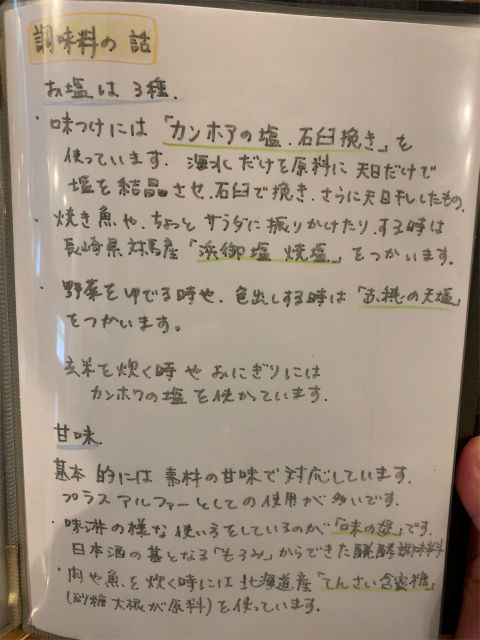 調味料の話
お塩は3種.
・味つけには「カンホアの塩.石臼挽き」を
使っています. 海水だけを原料に天日だけで
塩を結晶させ.石臼で挽き.さらに天日干ししたもの.
・焼き魚や.ちょっとサラダに振りかけたり.する時は
長崎県対馬産「浜御塩 焼塩」をつかいます.
・野菜をゆでる時や.色出しする時は「赤穂の天塩」
をつかいます。
玄米を炊く時やおにぎりには
カンホワの塩を使かっています.
甘味.
基本的には素材の甘味で対応しています.
プラスアルファーとしての使用が多いです.
・味淋の様な使い方をしているのが「味の母」です.
日本酒の基となる「もろみ」からできた醗酵調味料
・肉や魚を炊く時には北海道産「てんさい含蜜糖」
(砂糖大根が原料)を使っています.